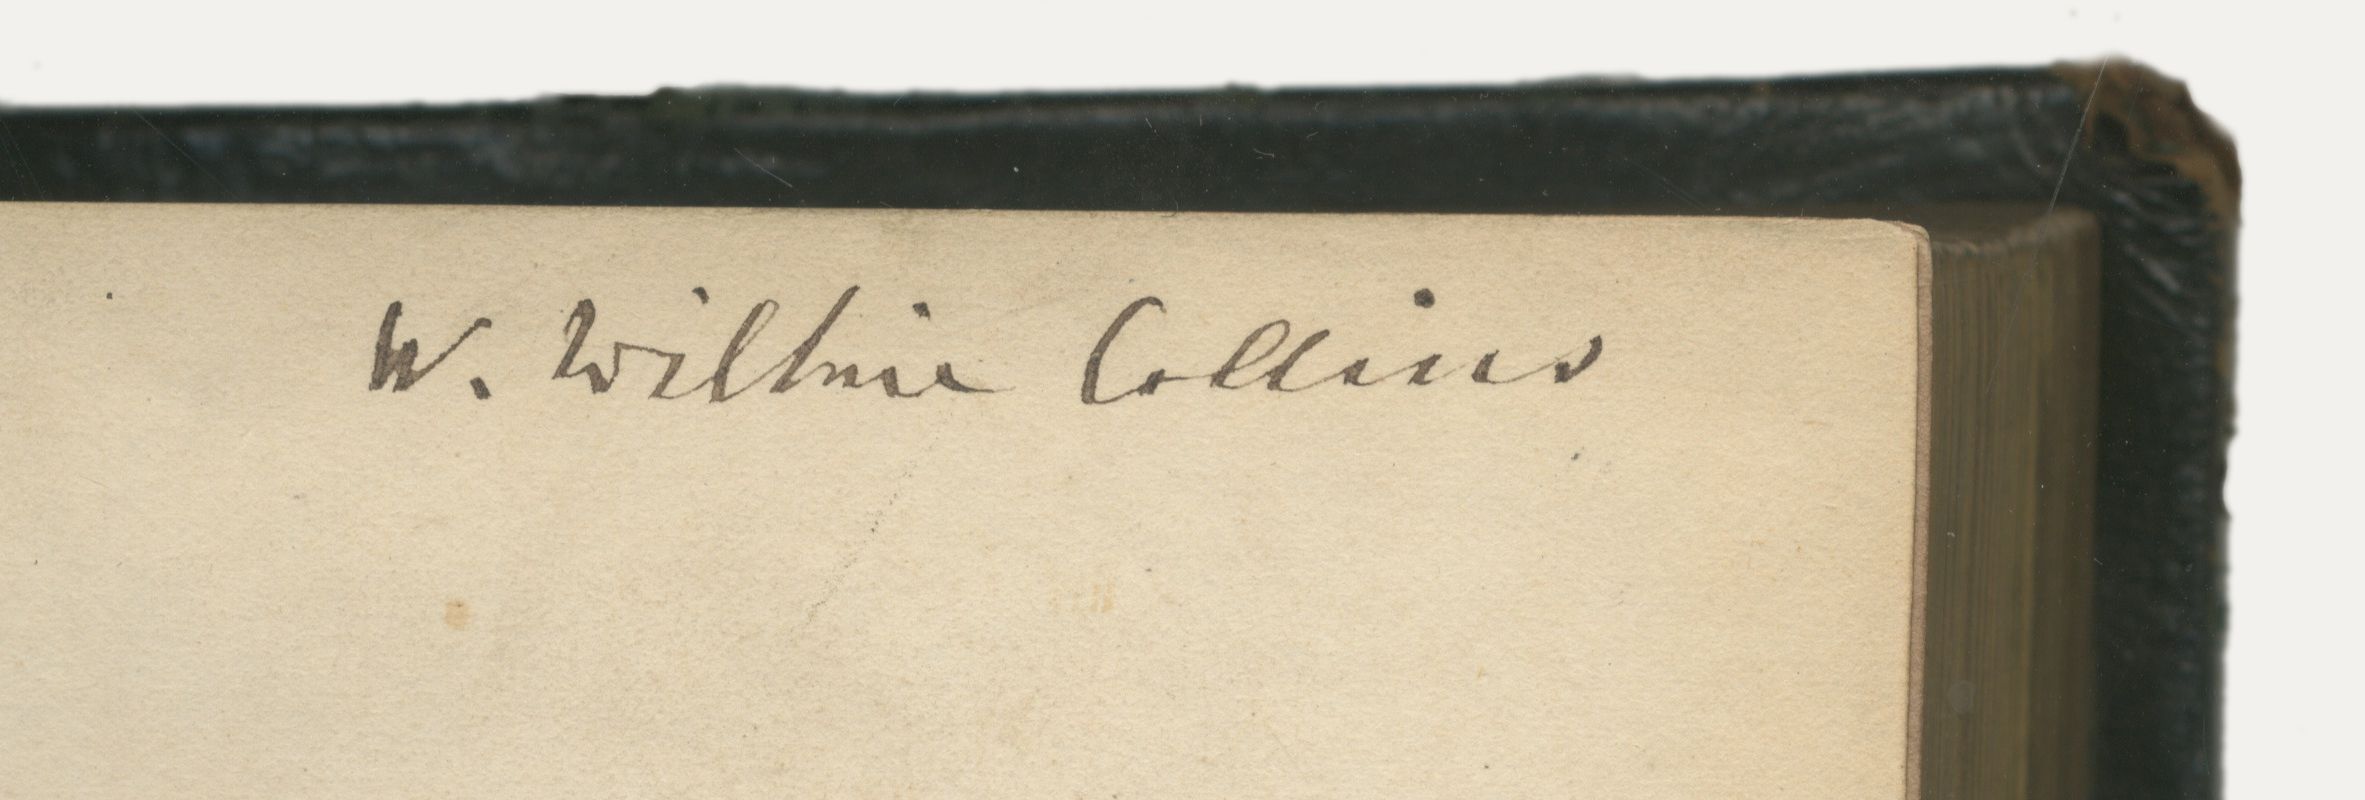 W. Wilkie Collins